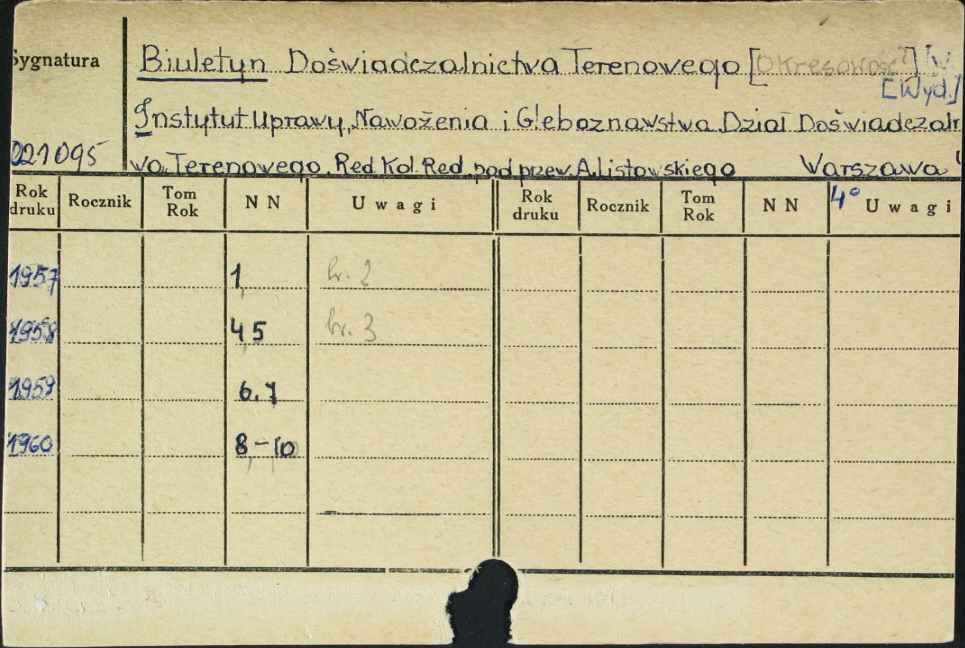 Sygnatura
Biuletyn Doświadczalnictwa Terenowego [Okresowość]
[Wyd.]
Instytut Uprawy, Nawożenia i Gleboznawstwa Dział Doświadczaln
021095
wa Terenowego. Red. Kol. Red. pod przew. A. Listowskiego Warszawa
Rok druku Rocznik Tom Rok N N Uwagi Rok druku Rocznik Tom Rok N N 4° Uwagi
1957 1 br. 2
1958 4 5 br. 3
1959 6.7
1960 8-10